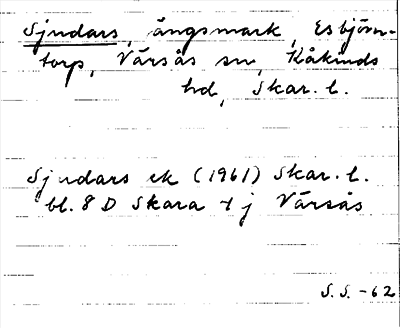 Sjudars, ängsmark, Esbjörn-
torp, Värsås sn, Kåkinds
hd, Skar. l.
Sjudars ek (1961) Skar. l.
bl. 8 D Skara t j Värsås
S. S. -62